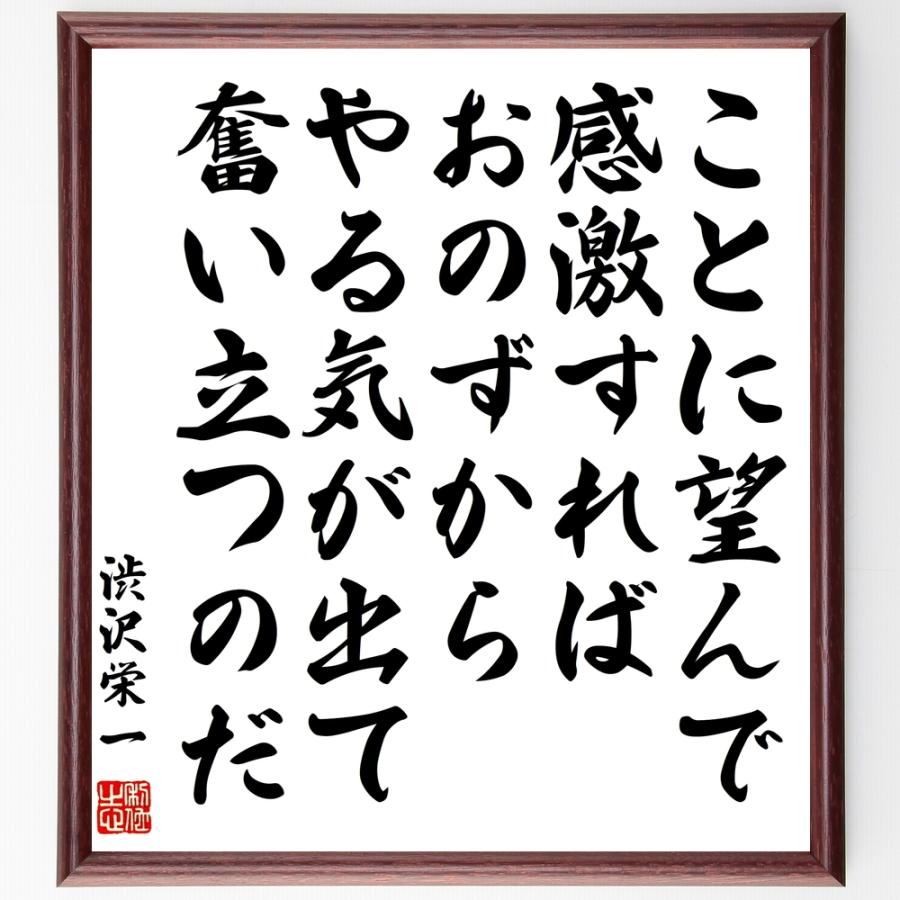 ことに望んで
感激すれば
おのずから
やる気が出て
奮い立つのだ
渋沢栄一